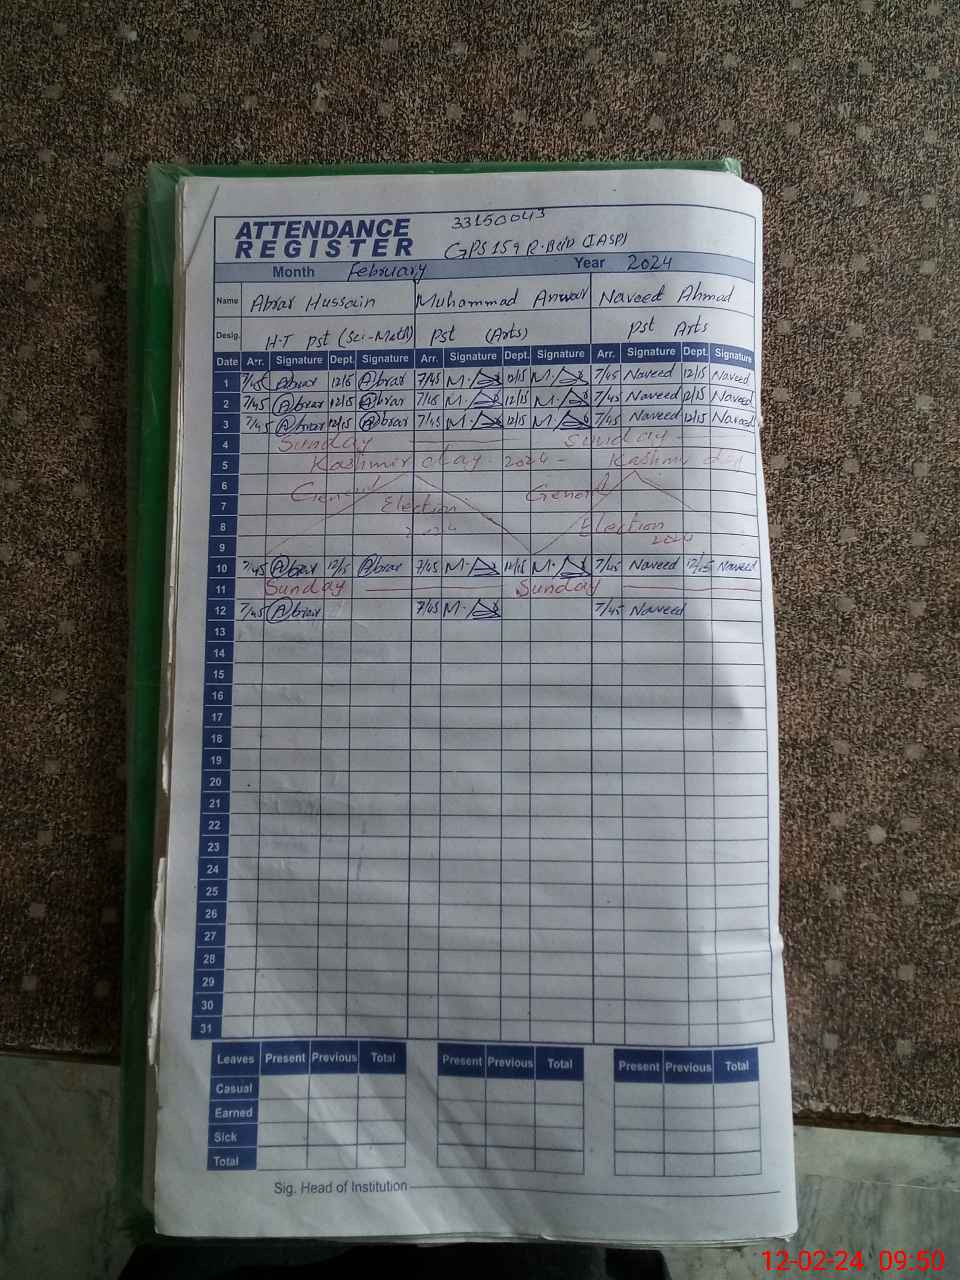 ATTENDANCE REGISTER
33150043
GPS 159 R.B (IASP)
Month February Year 2024
Name Abrar Hussain Muhammad Anwar Naveed Ahmad
Desig. H.T pst (Sci-Math) Pst (Arts) Pst Arts
Date Arr. Signature Dept. Signature Arr. Signature Dept. Signature Arr. Signature Dept. Signature
1 7/45 Abrar 12/15 Abrar 7/45 M. 12/15 M. 7/45 Naveed 12/15 Naveed
2 7/45 Abrar 12/15 Abrar 7/45 M. 12/15 M. 7/45 Naveed 12/15 Naveed
3 7/45 Abrar 12/15 Abrar 7/45 M. 12/15 M. 7/45 Naveed 12/15 Naveed
4 Sunday Sunday
5 Kashmir day 2024 Kashmir day
6 General General
7 Election
8 2024 Election
9 2024
10 7/45 Abrar 12/15 Abrar 7/45 M. 12/15 M. 7/45 Naveed 12/15 Naveed
11 Sunday Sunday
12 7/45 Abrar 7/45 M. 7/45 Naveed
13
14
15
16
17
18
19
20
21
22
23
24
25
26
27
28
29
30
31
Leaves Present Previous Total Present Previous Total Present Previous Total
Casual
Earned
Sick
Total
Sig. Head of Institution
12-02-24 09:50